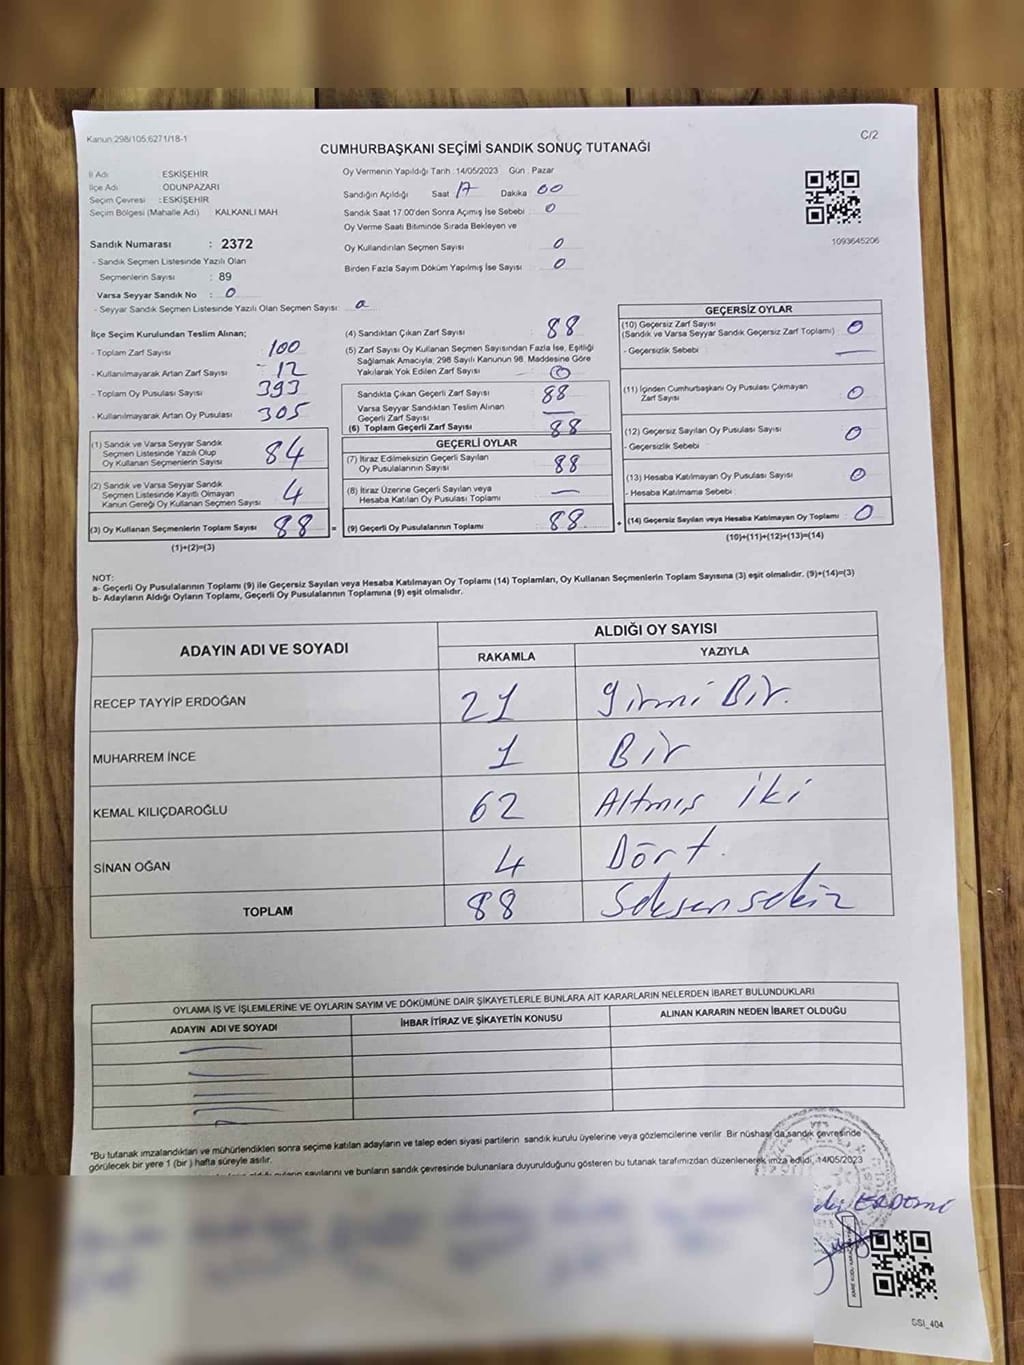 Kanun:298/105;6271/18-1
C/2
CUMHURBAŞKANI SEÇİMİ SANDIK SONUÇ TUTANAĞI
İl Adı : ESKİŞEHİR
İlçe Adı ODUNPAZARI
Seçim Çevresi : ESKİŞEHİR
Seçim Bölgesi (Mahalle Adı) KALKANLI MAH
Sandık Numarası : 2372
- Sandık Seçmen Listesinde Yazılı Olan
Seçmenlerin Sayısı : 89
Varsa Seyyar Sandık No : 0
- Seyyar Sandık Seçmen Listesinde Yazılı Olan Seçmen Sayısı
Oy Vermenin Yapıldığı Tarih :14/05/2023 Gün : Pazar
Sandığın Açıldığı Saat 17 Dakika 00
Sandık Saat 17:00'den Sonra Açımış İse Sebebi : 0
Oy Verme Saati Bitiminde Sırada Bekleyen ve
Oy Kullandırılan Seçmen Sayısı 0
Birden Fazla Sayım Döküm Yapılmış İse Sayısı 0
1093645206
İlçe Seçim Kurulundan Teslim Alınan;
- Toplam Zarf Sayısı 100
- Kullanılmayarak Artan Zarf Sayısı 12
- Toplam Oy Pusulası Sayısı 393
- Kullanılmayarak Artan Oy Pusulası 305
(1) Sandık ve Varsa Seyyar Sandık
Seçmen Listesinde Yazılı Olup
Oy Kullanan Seçmenlerin Sayısı 84
(2) Sandık ve Varsa Seyyar Sandık
Seçmen Listesinde Kayıtlı Olmayan
Kanun Gereği Oy Kullanan Seçmen Sayısı 4
(3) Oy Kullanan Seçmenlerin Toplam Sayısı 88 =
(1)+(2)=(3)
(4) Sandıktan Çıkan Zarf Sayısı 88
(5) Zarf Sayısı Oy Kullanan Seçmen Sayısından Fazla İse, Eşitliği
Sağlamak Amacıyla, 298 Sayılı Kanunun 98. Maddesine Göre
Yakılarak Yok Edilen Zarf Sayısı 0
Sandıkta Çıkan Geçerli Zarf Sayısı 88
Varsa Seyyar Sandıktan Teslim Alınan
Geçerli Zarf Sayısı —
(6) Toplam Geçerli Zarf Sayısı 88
GEÇERLİ OYLAR
(7) İtiraz Edilmeksizin Geçerli Sayılan
Oy Pusulalarının Sayısı 88
(8) İtiraz Üzerine Geçerli Sayılan veya
Hesaba Katılan Oy Pusulası Toplamı —
(9) Geçerli Oy Pusulalarının Toplamı 88 +
GEÇERSİZ OYLAR
(10) Geçersiz Zarf Sayısı
(Sandık ve Varsa Seyyar Sandık Geçersiz Zarf Toplamı) 0
- Geçersizlik Sebebi —
(11) İçinden Cumhurbaşkanı Oy Pusulası Çıkmayan
Zarf Sayısı 0
(12) Geçersiz Sayılan Oy Pusulası Sayısı 0
- Geçersizlik Sebebi
(13) Hesaba Katılmayan Oy Pusulası Sayısı 0
- Hesaba Katılmama Sebebi
(14) Geçersiz Sayılan veya Hesaba Katılmayan Oy Toplamı 0
(10)+(11)+(12)+(13)=(14)
NOT:
a- Geçerli Oy Pusulalarının Toplamı (9) ile Geçersiz Sayılan veya Hesaba Katılmayan Oy Toplamı (14) Toplamları, Oy Kullanan Seçmenlerin Toplam Sayısına (3) eşit olmalıdır. (9)+(14)=(3)
b- Adayların Aldığı Oyların Toplamı, Geçerli Oy Pusulalarının Toplamına (9) eşit olmalıdır.
ADAYIN ADI VE SOYADI
ALDIĞI OY SAYISI
RAKAMLA YAZIYLA
RECEP TAYYİP ERDOĞAN 21 Yirmi Bir.
MUHARREM İNCE 1 Bir
KEMAL KILIÇDAROĞLU 62 Altmış iki
SİNAN OĞAN 4 Dört.
TOPLAM 88 Seksen sekiz
OYLAMA İŞ VE İŞLEMLERİNE VE OYLARIN SAYIM VE DÖKÜMÜNE DAİR ŞİKAYETLERLE BUNLARA AİT KARARLARIN NELERDEN İBARET BULUNDUKLARI
ADAYIN ADI VE SOYADI İHBAR İTİRAZ VE ŞİKAYETİN KONUSU ALINAN KARARIN NEDEN İBARET OLDUĞU
"Bu tutanak imzalandıktan ve mühürlendikten sonra seçime katılan adayların ve talep eden siyasi partilerin sandık kurulu üyelerine veya gözlemcilerine verilir. Bir nüshası da sandık çevresinde
görülecek bir yere 1 (bir) hafta süreyle asılır.
sayılarını ve bunların sandık çevresinde bulunanlara duyurulduğunu gösteren bu tutanak tarafımızdan düzenlenerek imza edildi, 14/05/2023
ERDEMİ
SSI_404